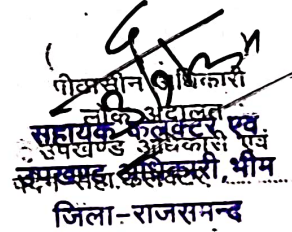 पीठासीन अधिकारी
लोक अदालत
सहायक कलक्टर एवं
उपखण्ड अधिकारी एवं
उपखण्ड अधिकारी, भीम
जिला-राजसमन्द